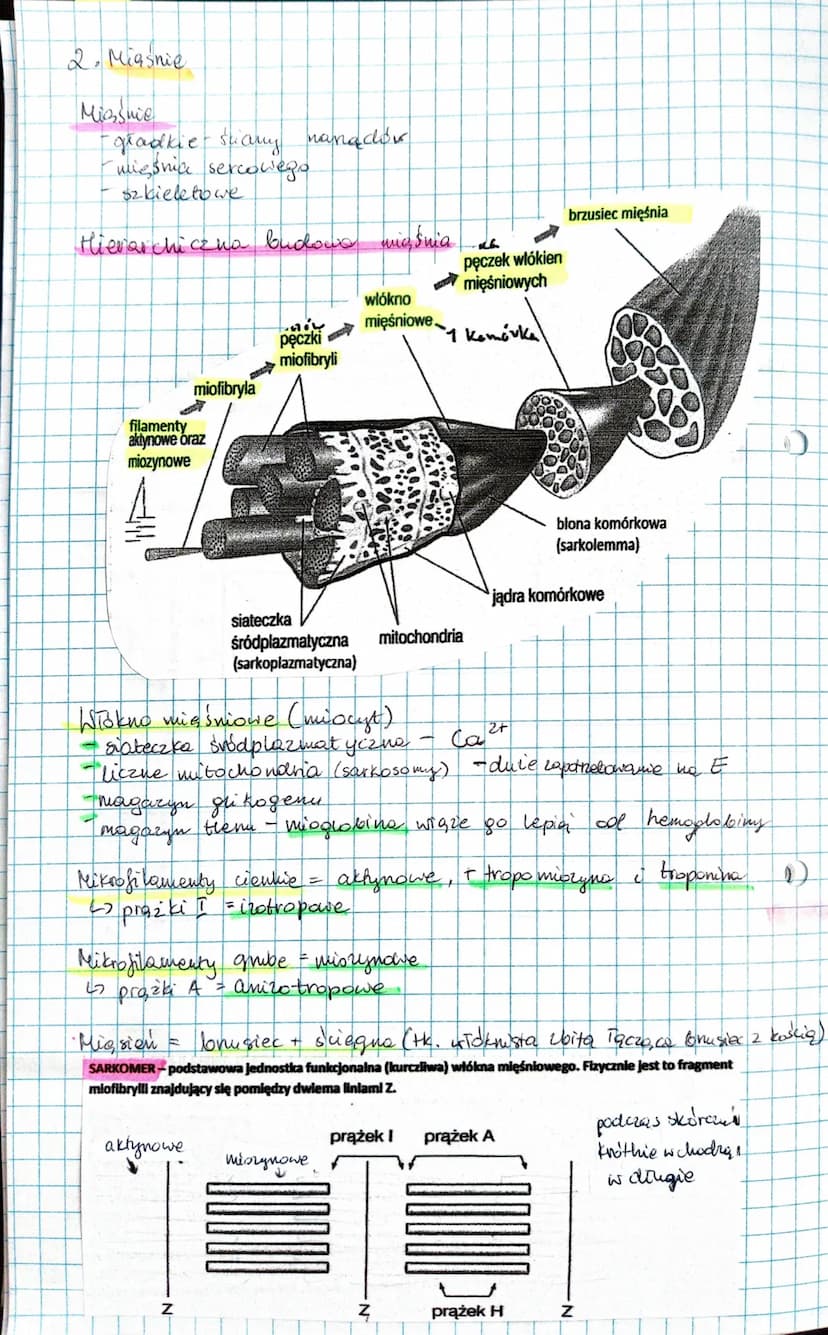 2. Mięśnie
Mięśnie
- gładkie - ściany narządów
- mięśnia sercowego
- szkieletowe
Hierarchiczna budowa mięśnia
brzusiec mięśnia
pęczek włókien
mięśniowych
włókno
mięśniowe - 1 komórka
pęczki
miofibryli
miofibryla
filamenty
aktynowe oraz
miozynowe
błona komórkowa
(sarkolemma)
jądra komórkowe
mitochondria
siateczka
śródplazmatyczna
(sarkoplazmatyczna)
Włókno mięśniowe (miocyt)
- siateczka śródplazmatyczna - Ca²⁺
- liczne mitochondria (sarkosomy) - duże zapotrzebowanie na E
- magazyn glikogenu
- magazyn tlenu - mioglobina, wiąże go lepiej od hemoglobiny
Mikrofilamenty cienkie = aktynowe, + tropomiozyna i troponina
↳ prążki I = izotropowe
Mikrofilamenty grube = miozynowe
↳ prążki A = anizotropowe
Mięsień = brzusiec + ścięgna (tk. włóknista zbita łącząca brzusiec z kością)
SARKOMER – podstawowa jednostka funkcjonalna (kurczliwa) włókna mięśniowego. Fizycznie jest to fragment
miofibrylli znajdujący się pomiędzy dwiema liniami Z.
aktynowe
miozynowe
prążek I
prążek A
podczas skurczu
krótkie wchodzą
w długie
Z
Z
prążek H
Z